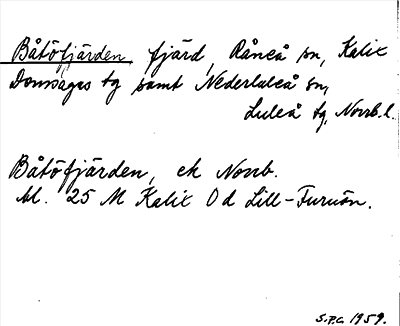 Båtöfjärden fjärd, Råneå sn, Kalix
Domsagas tg samt Nederluleå sn,
Luleå tg, Norrb. l.
Båtöfjärden, ek Norrb.
bl. 25 M Kalix 0 d Lill-Furuön.
S.P.G. 1959.